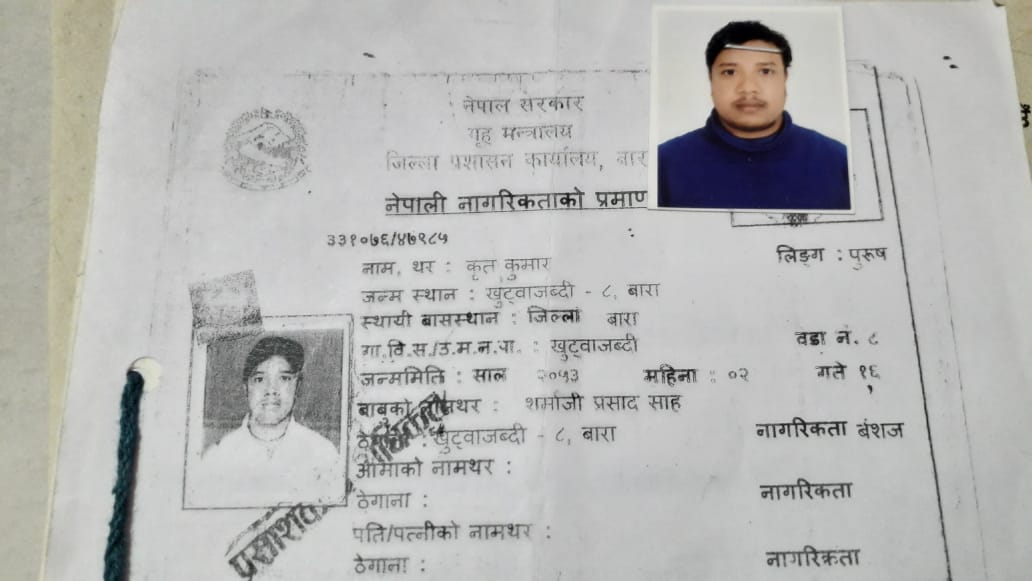 नेपाल सरकार
गृह मन्त्रालय
जिल्ला प्रशासन कार्यालय, बारा
नेपाली नागरिकताको प्रमाण
३३१०७६/४७९८५
नाम, थर : कृत कुमार लिङ्ग : पुरूष
जन्म स्थान : खुट्वाजब्दी - ८, बारा
स्थायी बासस्थान : जिल्ला बारा
गा.वि.स./उ.म.न.पा. : खुट्वाजब्दी वडा नं. ८
जन्ममिति : साल २०५३ महिना : ०२ गते १६
बाबुको नामथर : शर्माजी प्रसाद साह
ठेगाना : खुट्वाजब्दी - ८, बारा नागरिकता बंशज
आमाको नामथर :
ठेगाना : नागरिकता
पति/पत्नीको नामथर :
ठेगाना : नागरिकता